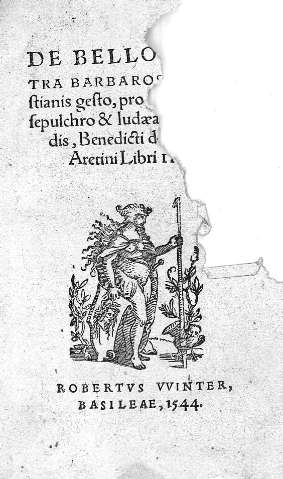 DE BELLO
TRA BARBAROS
stianis gesto, pro
sepulchro & Iudæa
dis, Benedicti d
Aretini Libri II
ROBERTVS VVINTER,
BASILEAE, 1544.